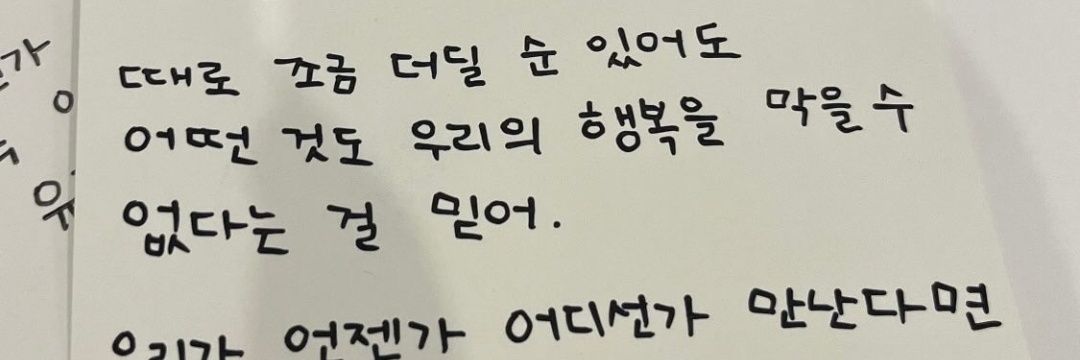 때로 조금 더딜 순 있어도
어떤 것도 우리의 행복을 막을 수
없다는 걸 믿어.
우리가 언젠가 어디선가 만난다면